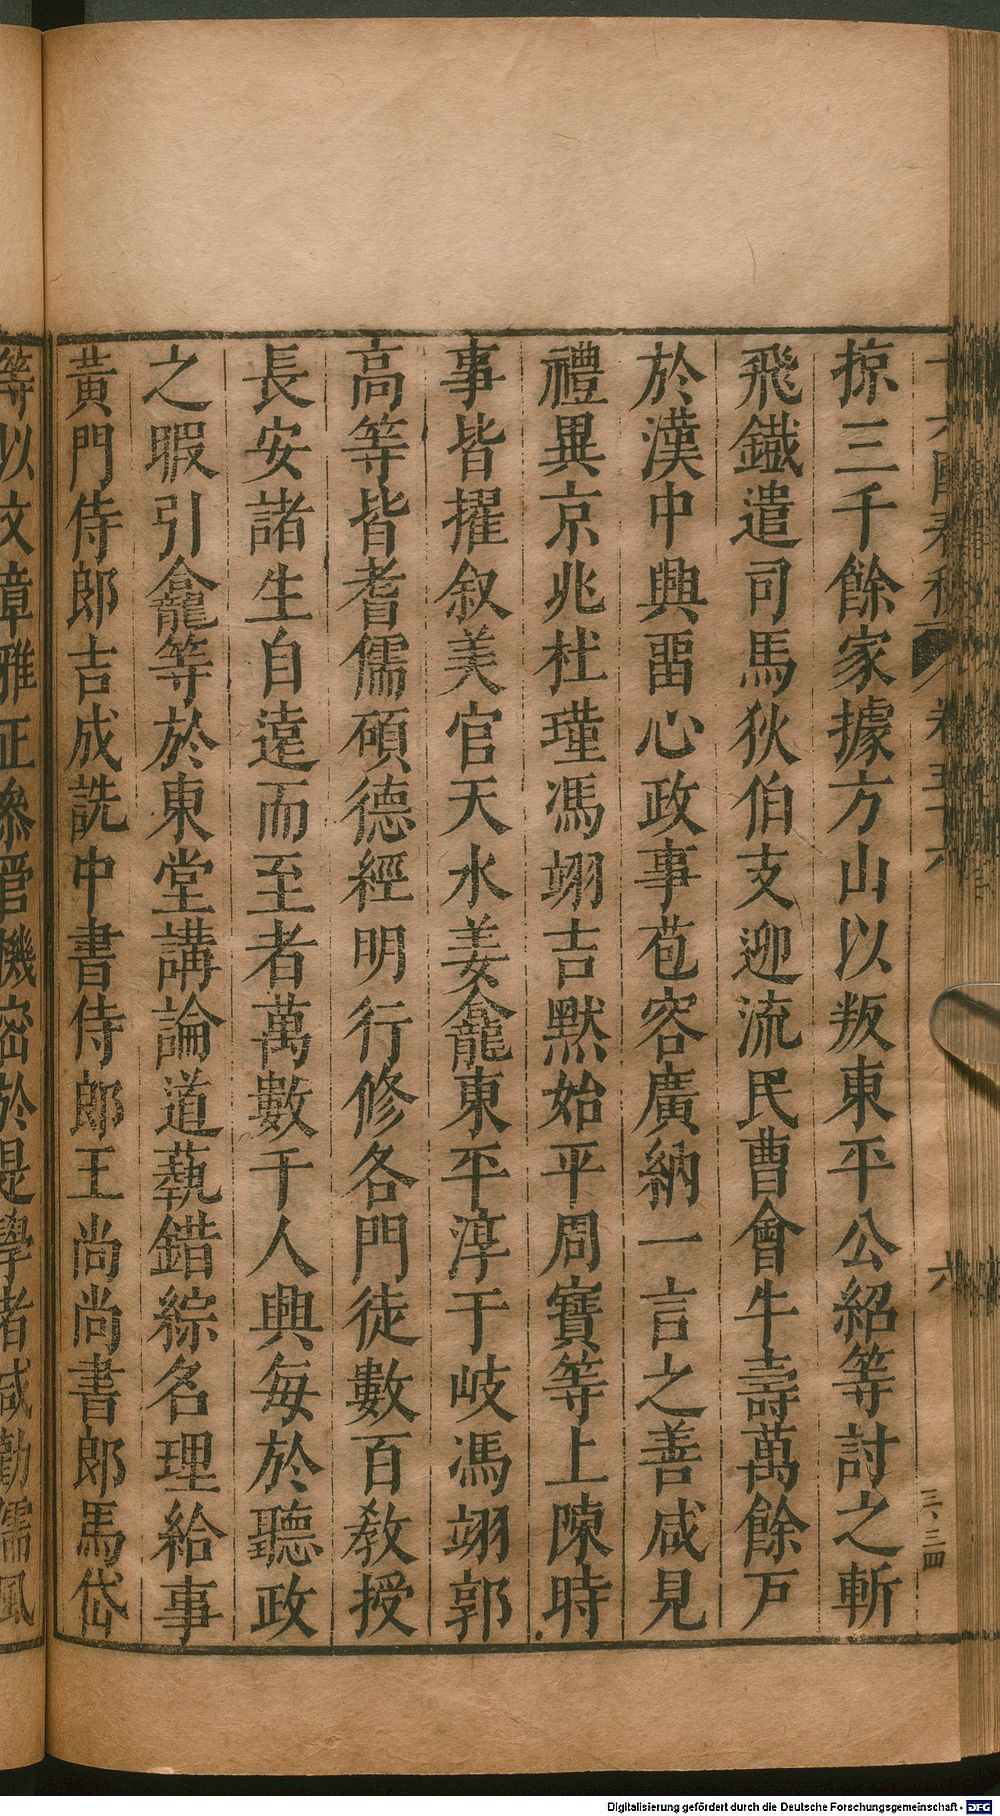 十六國春秋 卷五十六 六
三、三四
掠三千餘家據方山以叛東平公紹等討之斬
飛鐵遣司馬狄伯支迎流民曹會牛壽萬餘戸
於漢中興畱心政事苞容廣納一言之善咸見
禮異京兆杜瑾馮翊吉默始平周寶等上陳時
事皆擢叙美官天水姜龕東平淳于岐馮翊郭
高等皆耆儒碩德經明行修各門徒數百教授
長安諸生自遠而至者萬數千人興每於聽政
之暇引龕等於東堂講論道藝錯綜名理給事
黃門侍郎古成詵中書侍郎王尚尚書郎馬岱
等以文章雅正參管機密於是學者咸勸儒風
Digitalisierung gefördert durch die Deutsche Forschungsgemeinschaft - DFG